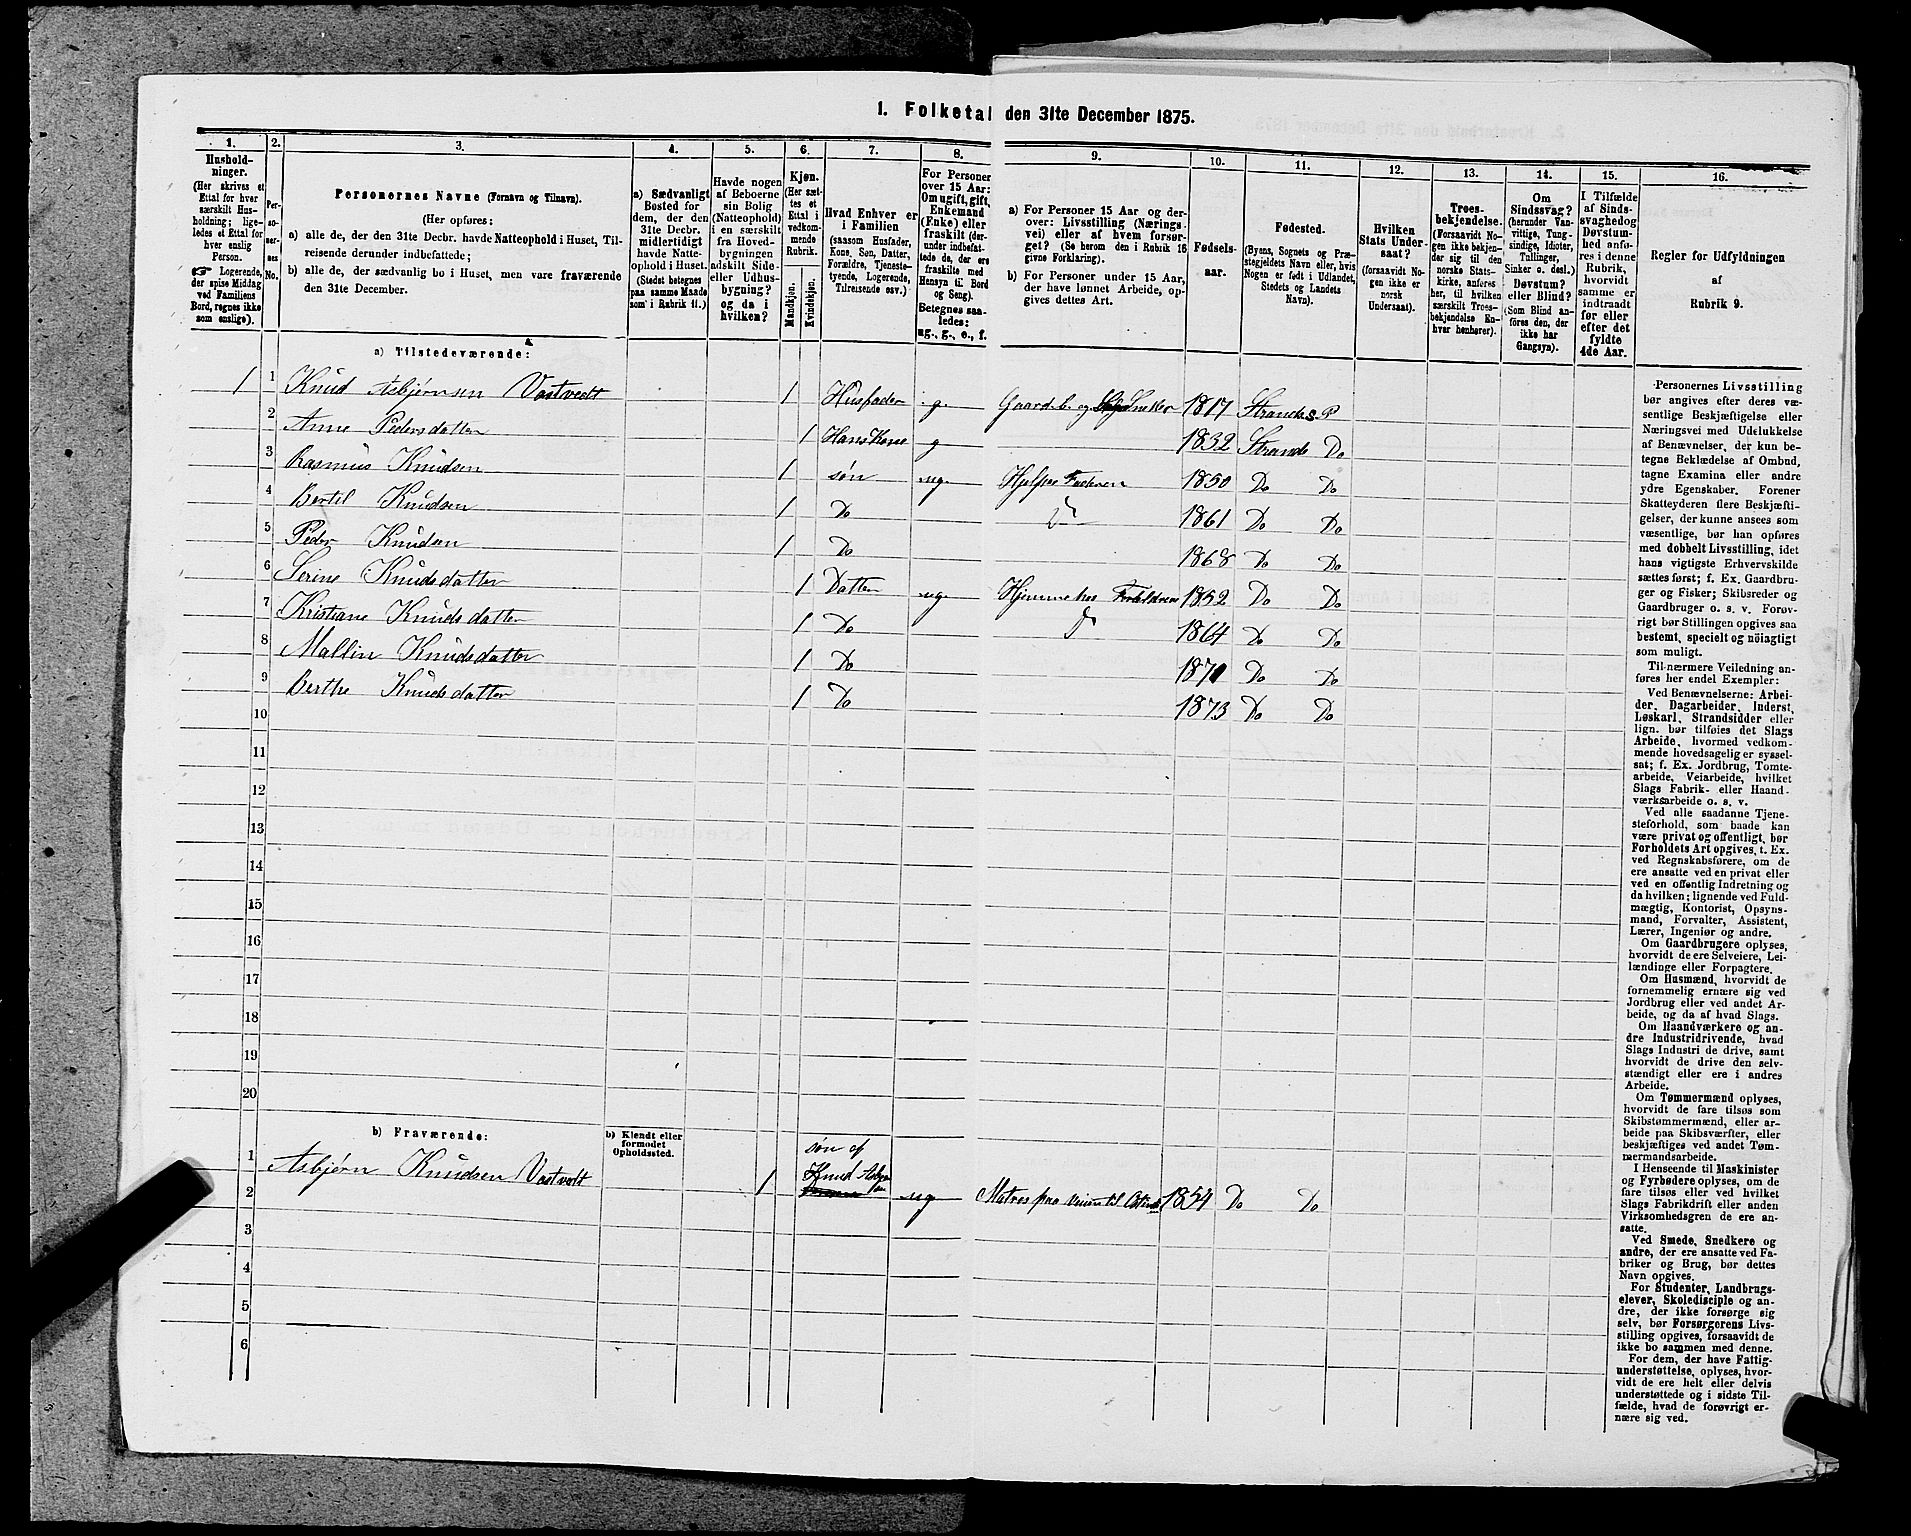 1. Folketal den 31te December 1875.
1. 2. 3. 4. 5. 6. 7. 8. 9. 10. 11. 12. 13. 14. 15. 16.
Hushold-
ninger.
(Her skrives et
Ettal for hver
særskilt Hus-
holdning; lige-
ledes et Ettal for
hver enslig
Person.
☞ Logerende,
der spise Middag
ved Familiens
Bord, regnes ikke
som enslige).
Per-
so-
ner-
nes
No.
Personernes Navne (Fornavn og Tilnavn).
(Her opføres:
a) alle de, der den 31te Decbr. havde Natteophold i Huset, Til-
reisende derunder indbefattede;
b) alle de, der sædvanlig bo i Huset, men vare fraværende
den 31te December.
a) Sædvanligt
Bosted for
dem, der den
31te Decbr.
midlertidigt
havde Natte-
ophold i Huset.
(Stedet betegnes
paa samme Maade
som i Rubrik 11.)
Havde nogen
af Beboerne
sin Bolig
(Natteophold)
i en særskilt
fra Hoved-
bygningen
adskilt Side-
eller Udhus-
bygning?
og da i
hvilken?
Kjøn.
(Her sæt-
tes et
Ettal i
vedkom-
mende
Rubrik.
Mandkjøn.
Kvindekjøn.
Hvad Enhver er
i Familien
(saasom Husfader,
Kone, Søn, Datter,
Forældre, Tjeneste-
tyende, Logerende,
Tilreisende osv.)
For Personer
over 15 Aar:
Om ugift, gift,
Enkemand
(Enke) eller
fraskilt (der-
under indbefat-
tede de, der ere
fraskilte med
Hensyn til Bord
og Seng).
Betegnes saa-
ledes:
ug., g., e., f.
a) For Personer 15 Aar og der-
over: Livsstilling (Nærings-
vei) eller af hvem forsør-
get? (Se herom den i Rubrik 16
givne Forklaring).
b) For Personer under 15 Aar,
der have lønnet Arbeide, op-
gives dettes Art.
Fødsels-
aar.
Fødested.
(Byens, Sognets og Præ-
stegjeldets Navn eller, hvis
Nogen er født i Udlandet,
Stedets og Landets
Navn).
Hvilken
Stats Under-
saat?
(forsaavidt No-
gen ikke er
norsk
Undersaat).
Troes-
bekjendelse.
(Forsaavidt No-
gen ikke bekjen-
der sig til den
norske Stats-
kirke, anføres
her, til hvilken
særskilt Troes-
bekjendelse En-
hver henhører).
Om
Sindssvag?
(herunder Van-
vittige, Tung-
sindige, Idioter,
Tullinger,
Sinker o. desl.)
Døvstum?
eller Blind?
(Som Blind an-
føres den, der
ikke har
Gangsyn).
I Tilfælde
af Sinds-
svaghed og
Døvstum-
hed anfø-
res i denne
Rubrik,
hvorvidt
samme er
indtraadt
før eller
efter det
fyldte
4de Aar.
Regler for Udfyldningen
af
Rubrik 9.
a) Tilstedeværende:
1 1 Knud Asbjørnsen Vastvedt 1 Husfader g. Gaardb. og Snekker 1817 Strands P
2 Anne Pedersdatter 1 Hans Kone g 1832 Strands Do
3 Rasmus Knudsen 1 søn ug. Hjelper Faderen 1850 Do Do
4 Bertil Knudsen 1 Do 1861 Do Do
5 Peder Knudsen 1 Do 1868 Do Do
6 Serine Knudsdatter 1 Datter ug Hjemme hos Forældrene 1852 Do Do
7 Kristiane Knudsdatter 1 Do 1864 Do Do
8 Mallin Knudsdatter 1 Do 1871 Do Do
9 Berthe Knudsdatter 1 Do 1873 Do Do
10
11
12
13
14
15
16
17
18
19
20
b) Fraværende:
b) Kjendt eller
formodet
Opholdssted.
1 Asbjørn Knudsen Vastvedt 1 søn af Knud ug Matros paa 1854 Do Do
2
3
4
5
6
Personernes Livsstilling
bør angives efter deres væ-
sentlige Beskjæftigelse eller
Næringsvei med Udelukkelse
af Benævnelser, der kun be-
tegne Beklædelse af Ombud,
tagne Examina eller andre
ydre Egenskaber. Forener
Skatteyderen flere Beskjæfti-
gelser, der kunne ansees som
væsentlige, bør han opføres
med dobbelt Livsstilling, idet
hans vigtigste Erhvervskilde
sættes først; f. Ex. Gaardbru-
ger og Fisker; Skibsreder og
Gaardbruger o. s. v. Forøv-
rigt bør Stillingen opgives saa
bestemt, specielt og nöiagtigt
som muligt.
Til nærmere Veiledning an-
føres her endel Exempler:
Ved Benævnelserne: Arbei-
der, Dagarbeider, Inderst,
Løskarl, Strandsidder eller
lign. bør tilføies det Slags
Arbeide, hvormed vedkom-
mende hovedsagelig er syssel-
sat; f. Ex. Jordbrug, Tomte-
arbeide, Veiarbeide, hvilket
Slags Fabrik- eller Haand-
værksarbeide o. s. v.
Ved alle saadanne Tjene-
steforhold, som baade kan
være privat og offentligt, bør
Forholdets Art opgives, t. Ex.
ved Regnskabsførere, om de
ere ansatte ved en privat eller
ved en offentlig Indretning og
da hvilken; lignende ved Fuld-
mægtig, Kontorist, Opsyns-
mand, Forvalter, Assistent,
Lærer, Ingeniør og andre.
Om Gaardbrugere oplyses,
hvorvidt de ere Selveiere, Lei-
lændinge eller Forpagtere.
Om Husmænd, hvorvidt de
fornemmelig ernære sig ved
Jordbrug eller ved andet Ar-
beide, og da af hvad Slags.
Om Haandværkere og an-
dre Industridrivende, hvad
Slags Industri de drive, samt
hvorvidt de drive den selv-
stændigt eller ere i andres
Arbeide.
Om Tømmermænd oplyses,
hvorvidt de fare tilsøs som
Skibstømmermænd, eller ar-
beide paa Skibsværfter, eller
beskjæftiges ved andet Tøm-
mermandsarbeide.
I Henseende til Maskinister
og Fyrbødere oplyses, om de
fare tilsøs eller ved hvilket
Slags Fabrikdrift eller anden
Virksomhedsgren de ere an-
satte.
Ved Smede, Snedkere og
andre, der ere ansatte ved Fa-
briker og Brug, bør dettes
Navn opgives.
For Studenter, Landbrugs-
elever, Skoledisciple og an-
dre, der ikke forsørge sig
selv, bør Forsørgerens Livs-
stilling opgives, forsaavidt de
ikke bo sammen med denne.
For dem, der have Fattig-
understøttelse, oplyses, hvor-
vidt de ere helt eller delvis
understøttede og i sidste Til-
fælde, hvad de forøvrigt er-
nære sig ved.